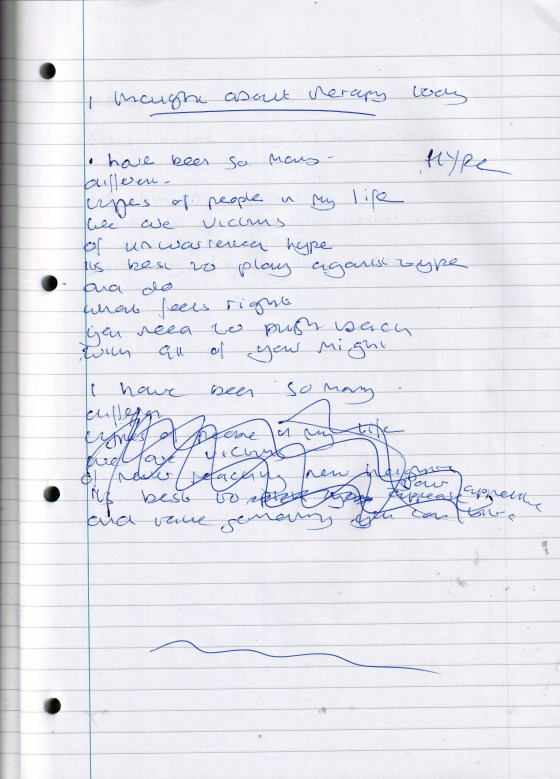 I thought about therapy today
HYPE
I have been so many
different
types of people in my life
we are victims
of unwarranted hype
its best to play against type
and do
what feels right
you need to push back
with all of your might
I have been so many
different
types of people in my life
and are victims
of never reaching new
its best to your
and take you can